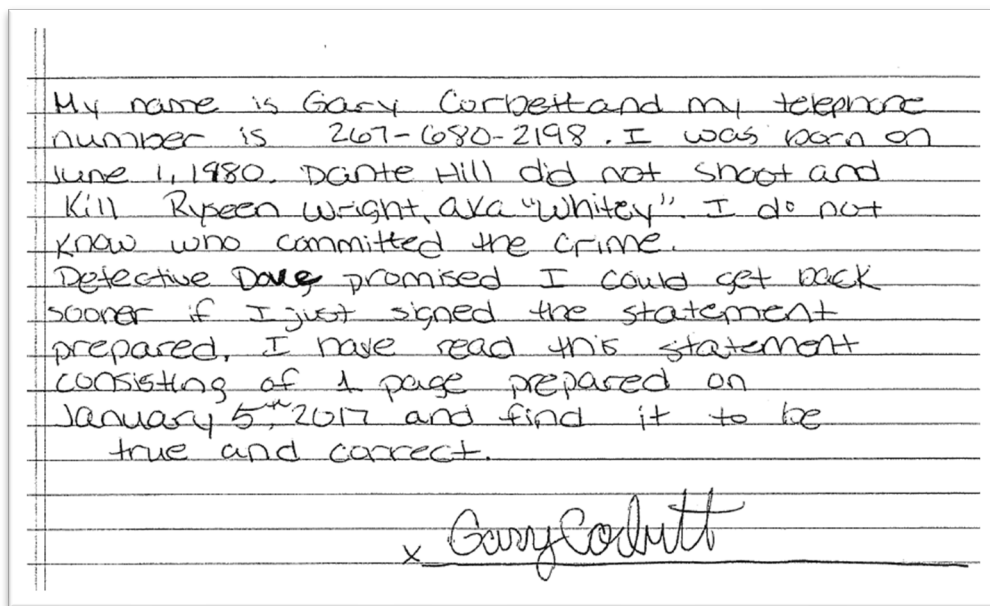 My name is Gary Corbett and my telephone
number is 267-680-2198. I was born on
June 1, 1980. Dante Hill did not shoot and
Kill Ryseen Wright, aka "Whitey". I do not
know who committed the crime.
Detective Dove promised I could get back
sooner if I just signed the statement
prepared. I have read this statement
consisting of 1 page prepared on
January 5th, 2017 and find it to be
true and correct.
x Gary Corbett